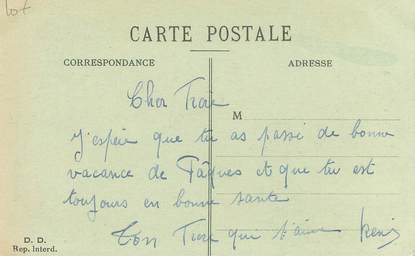 Lot
CARTE POSTALE
CORRESPONDANCE
ADRESSE
M
Cher Frère
J'espère que tu as passé de bonne
vacance de Pâques et que tu est
toujours en bonne santé
Ton Frère qui t'aime Henri
D. D.
Rep. Interd.